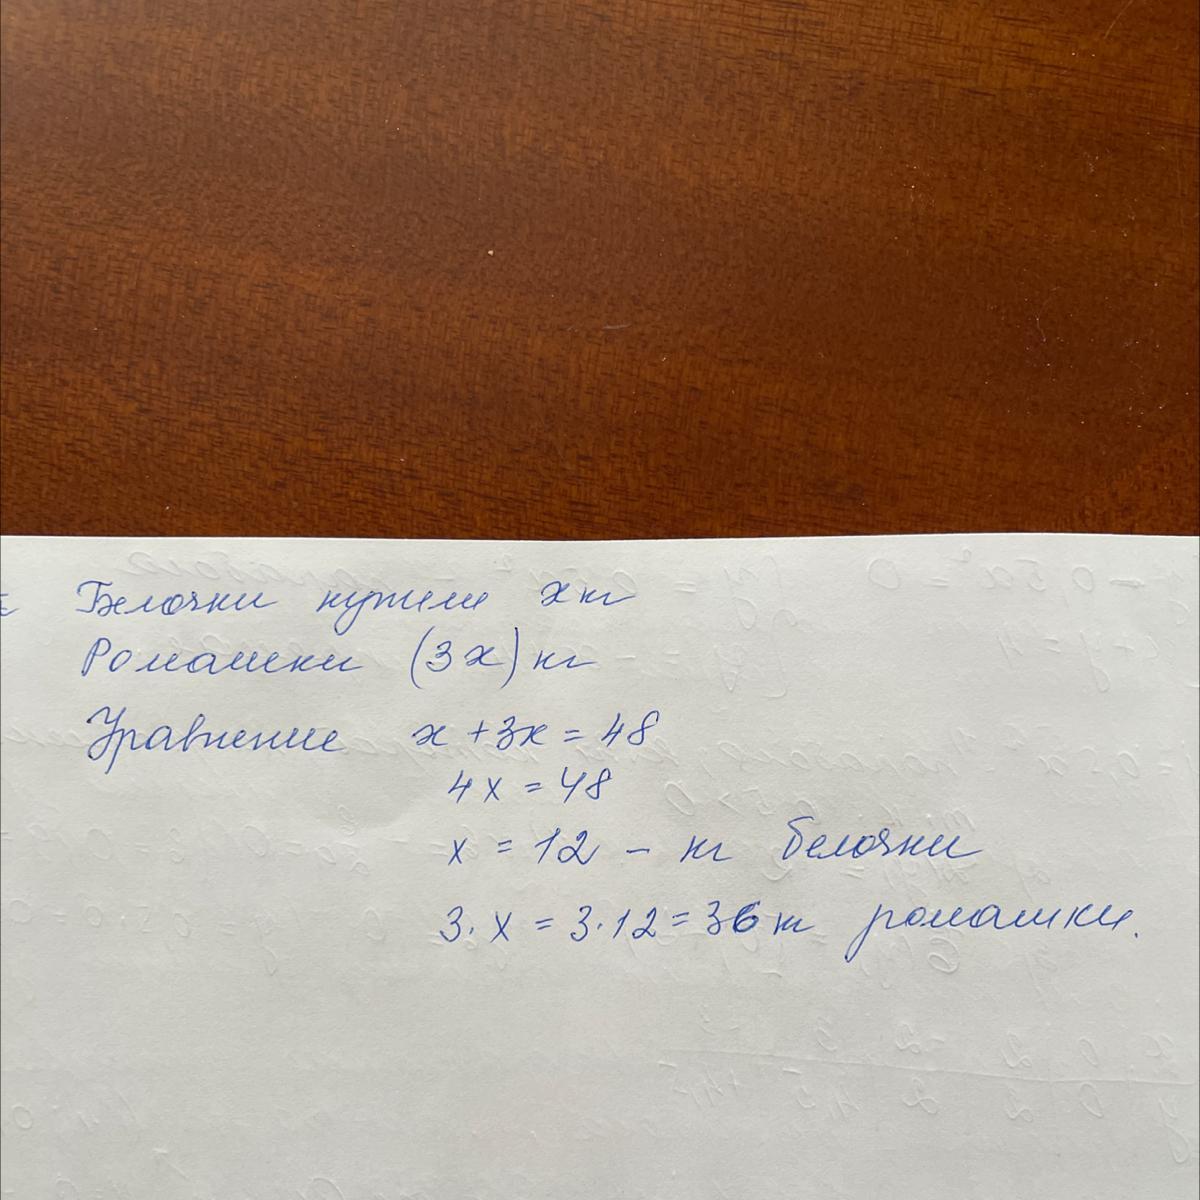 Белочки купили x кг
Ромашки (3x) кг
Уравнение x + 3x = 48
4x = 48
x = 12 - кг белочки
3·x = 3·12 = 36 кг ромашки.